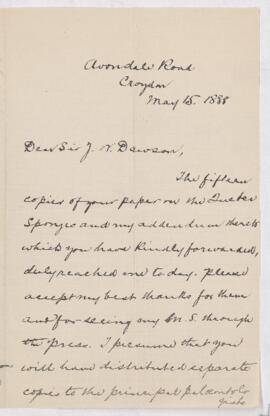 Avondale Road
Croydon
May 15. 1888
Dear Sir J. W. Dawson,
The fifteen
copies of your paper on the Quebec
Sponges and my addendum thereto
which you have kindly forwarded,
duly reached me to day. Please
accept my best thanks for them
and for seeing my M.S. through
the press. I presume that you
will have distributed separate
copies to the principal palæontolo
gists